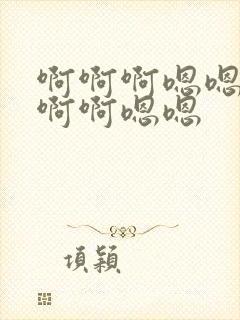 啊啊啊嗯嗯
啊啊嗯嗯
項穎